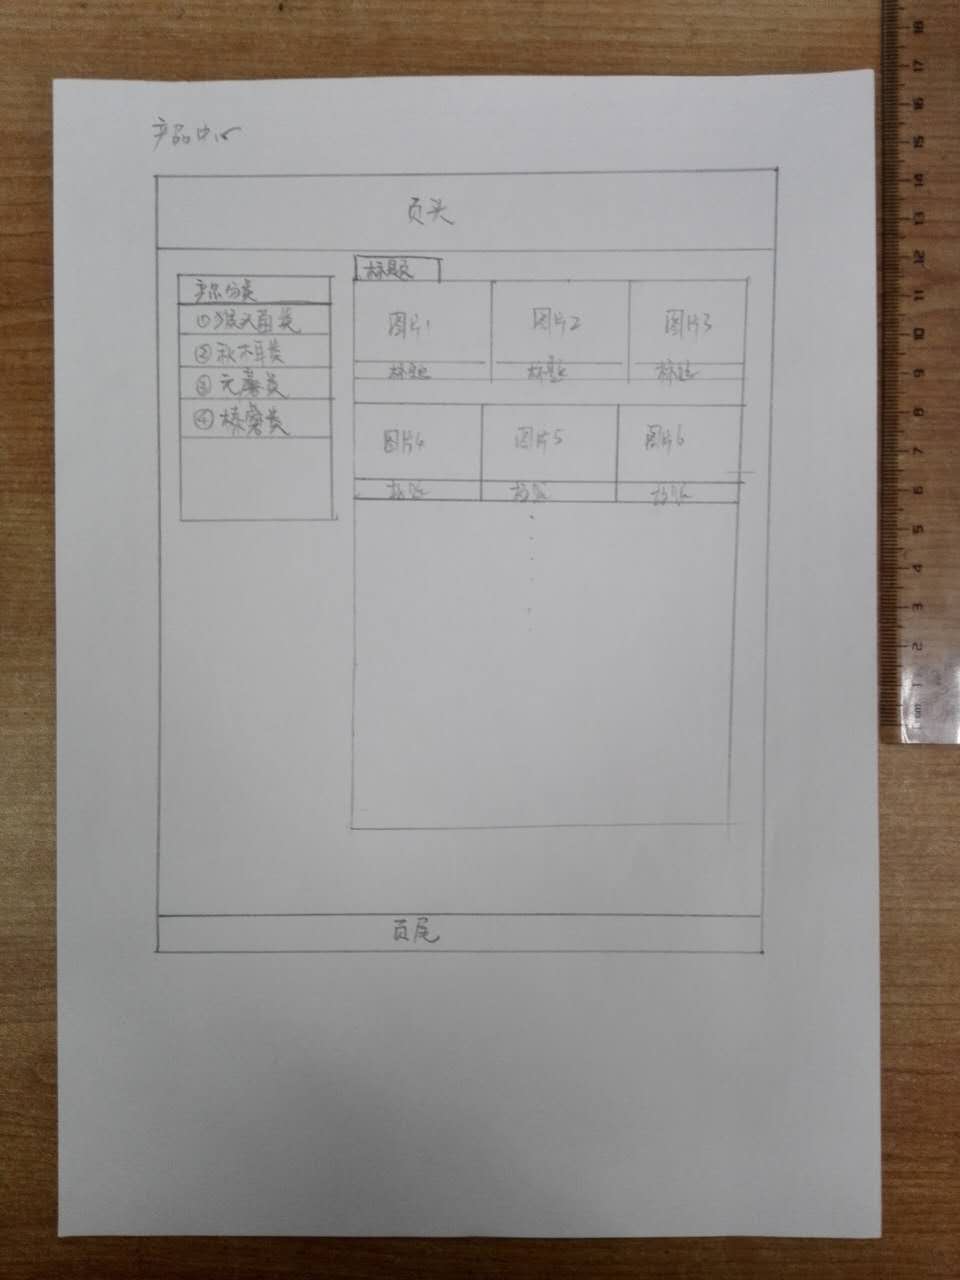 产品中心
页头
产品分类
①猴头菌类
②秋木耳类
③元蘑类
④榛蘑类
标题
图片1 图片2 图片3
标题 标题 标题
图片4 图片5 图片6
标题 标题 标题
页尾
18
17
16
15
14
13
12
11
10
9
8
7
6
5
4
3
2
1
cm